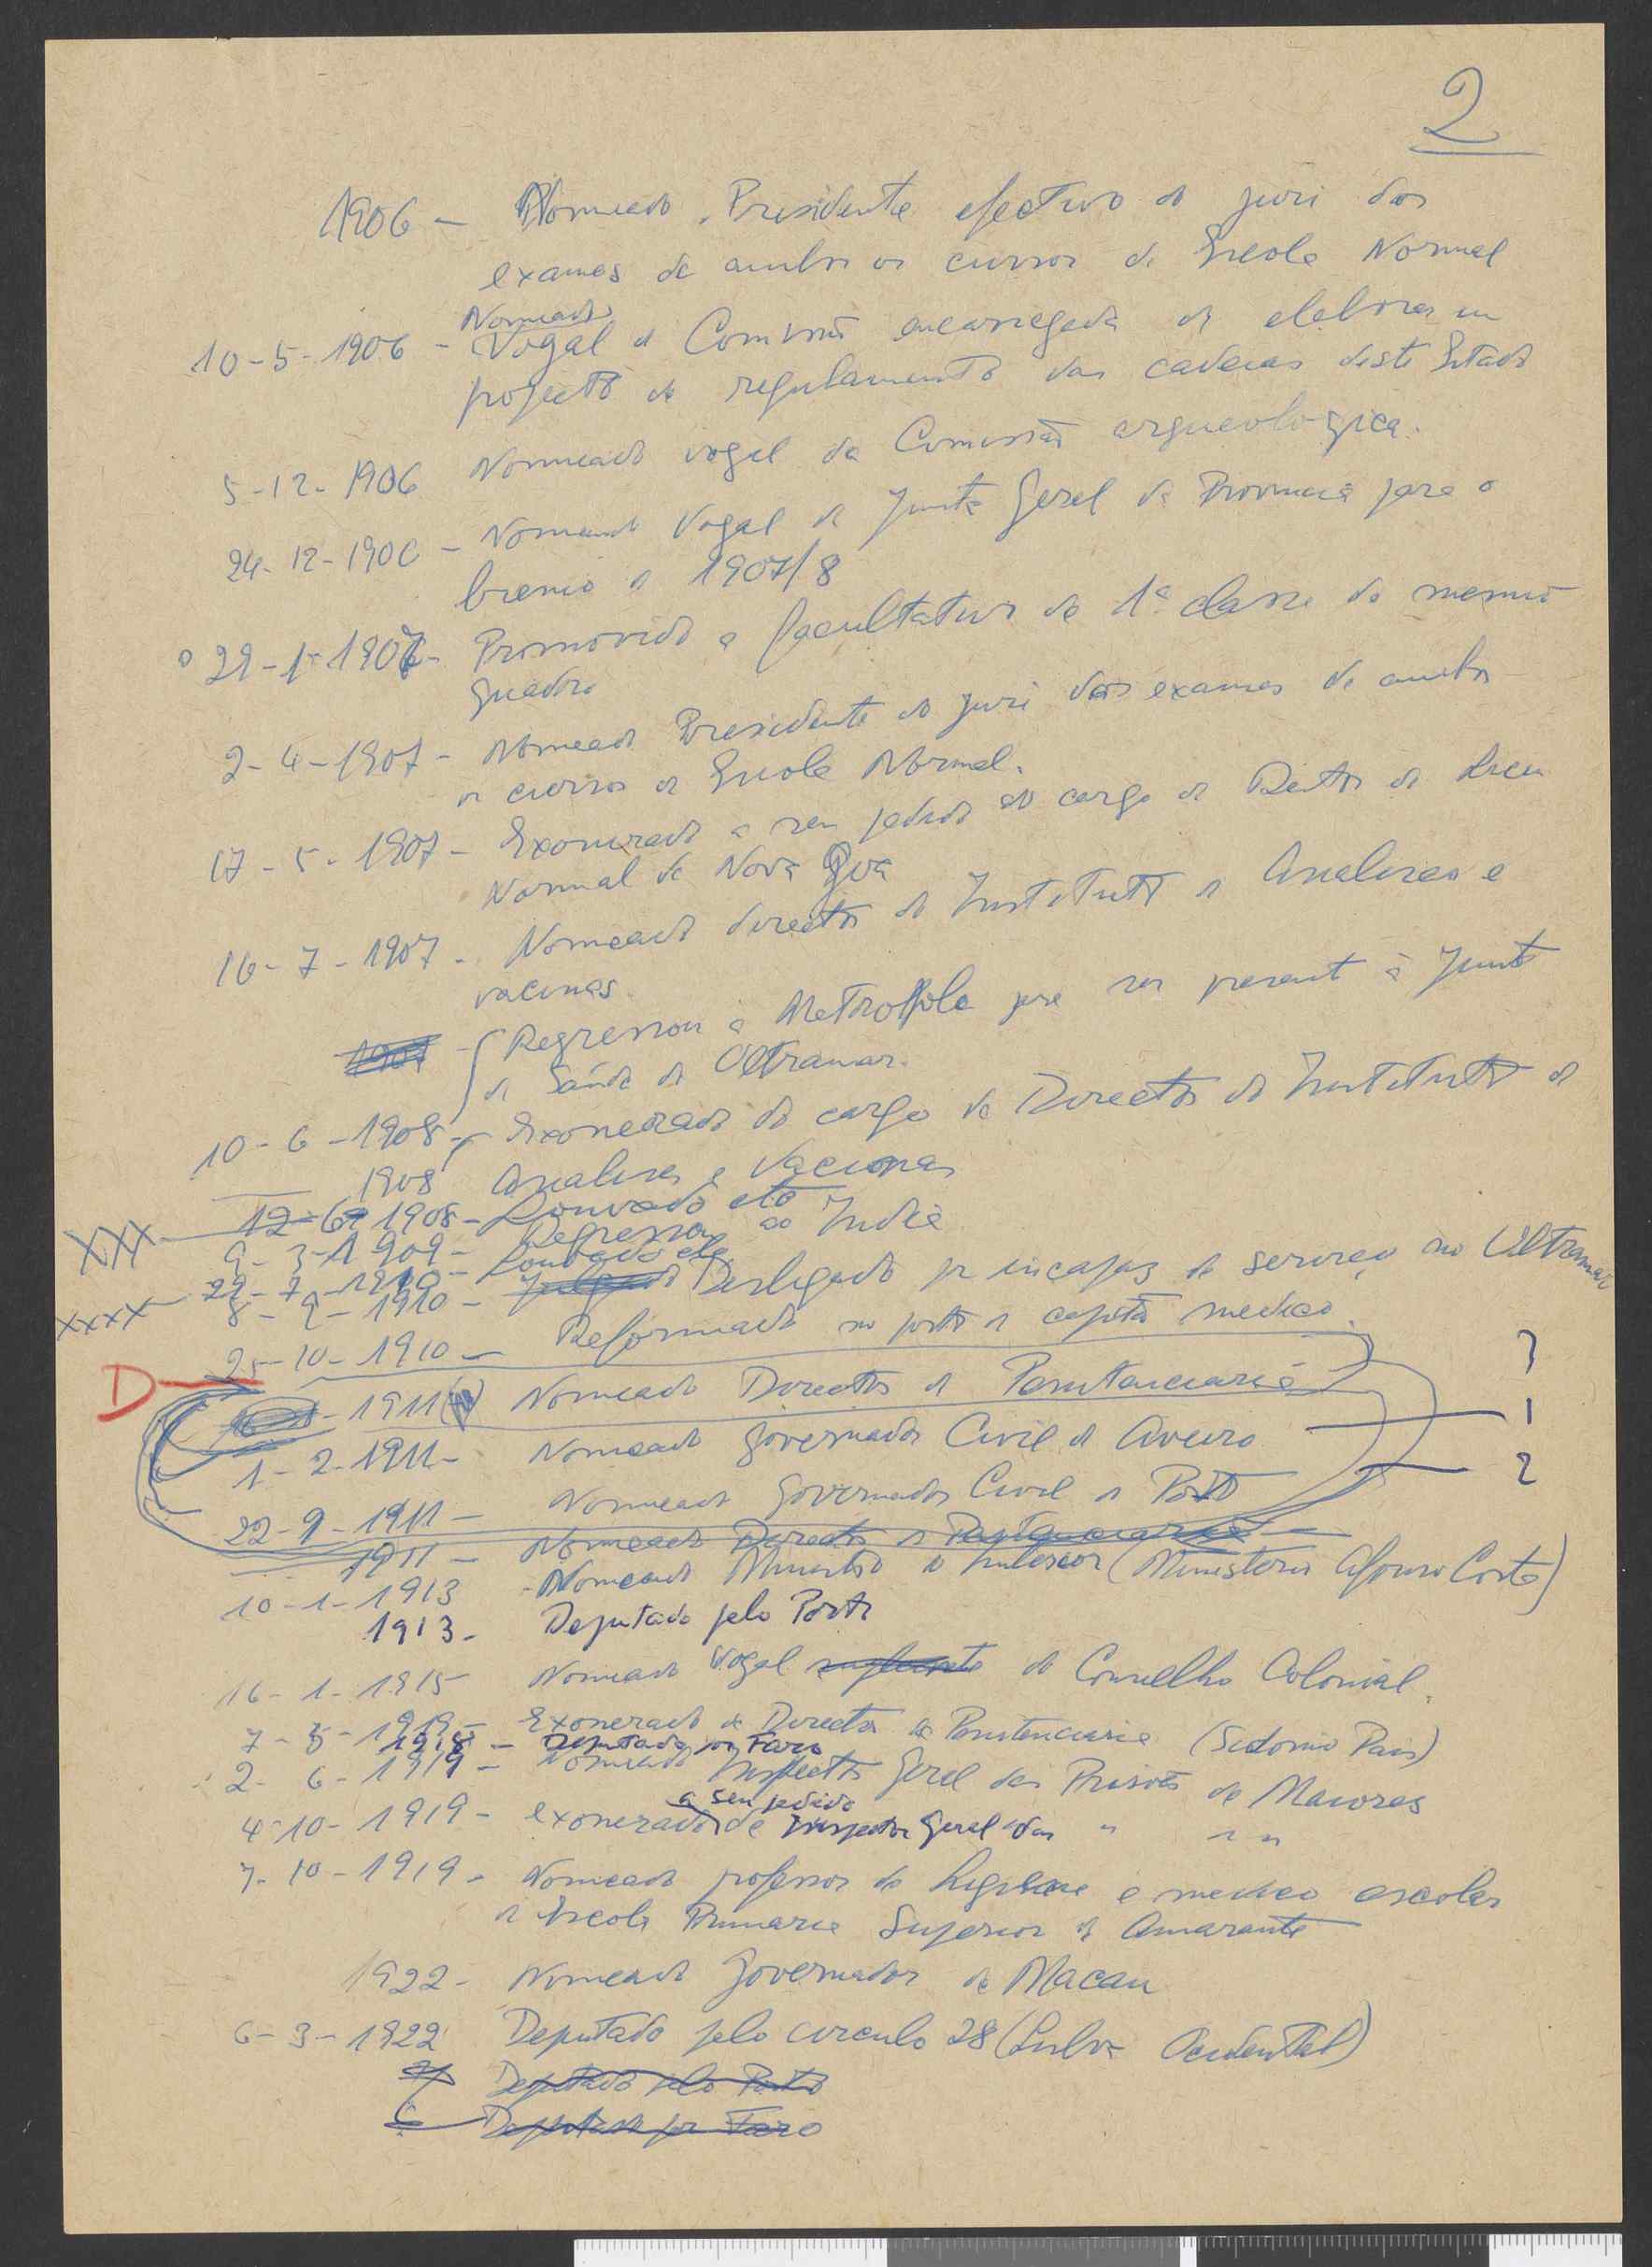 2
1906 - Nomeado Presidente efectivo do juri dos
exames de ambos os cursos da Escola Normal
Nomeado
10-5-1906 - Vogal da Comissão encarregada de elaborar um
projecto de regulamento das cadeias deste Estado
5-12-1906 Nomeado vogal da Comissão arqueológica.
24-12-1906 - Nomeado Vogal da Junta Geral da Provincia para o
bienio de 1907/8
29-1-1907 - Promovido a facultativo de 1ª classe do mesmo
quadro
2-4-1907 - Nomeado Presidente do juri dos exames de ambos
os cursos da Escola Normal.
17-5-1907 - Exonerado a seu pedido do cargo de Reitor do Liceu
Nacional de Nova Goa
16-7-1907 - Nomeado director do Instituto de Analises e
vacinas
1907 - Regressou à Metropole para ser presente à Junta
de Saúde do Ultramar.
10-6-1908 - Exonerado do cargo de Director do Instituto de
Analises e Vacinas
1908
XXX 12-6-1908 - Louvado etc
9-3-1909 - Regressou à India
29-7-1910 - Louvado etc
XXXX 8-9-1910 - Desligado pr incapaz de serviço no Ultramar
25-10-1910 - Reformado no posto de capitão medico.
D 1911 Nomeado Director da Penitenciaria 3
1-2-1911 - Nomeado Governador Civil de Aveiro 1
22-9-1911 - Nomeado Governador Civil do Porto 2
1911 - Nomeado Director da Penitenciaria
10-1-1913 - Nomeado Ministro do Interior (Ministerio Afonso Costa)
1913 - Deputado pelo Porto
16-1-1915 Nomeado Vogal suplente do Conselho Colonial.
7-5-1918 - Exonerado de Director da Penitenciaria (Sidonio Pais)
1918 - Deputado por Faro
2-6-1919 - Nomeado Inspector Geral das Prisões de Maiores
a seu pedido
4-10-1919 - exonerado de Inspector Geral das " " "
7-10-1919 - Nomeado professor de higiene e medico escolar
da Escola Primaria Superior de Amarante
1922 - Nomeado Governador de Macau
6-3-1922 Deputado pelo circulo 28 (Lisboa Ocidental)
Deputado pelo Porto
Deputado por Faro